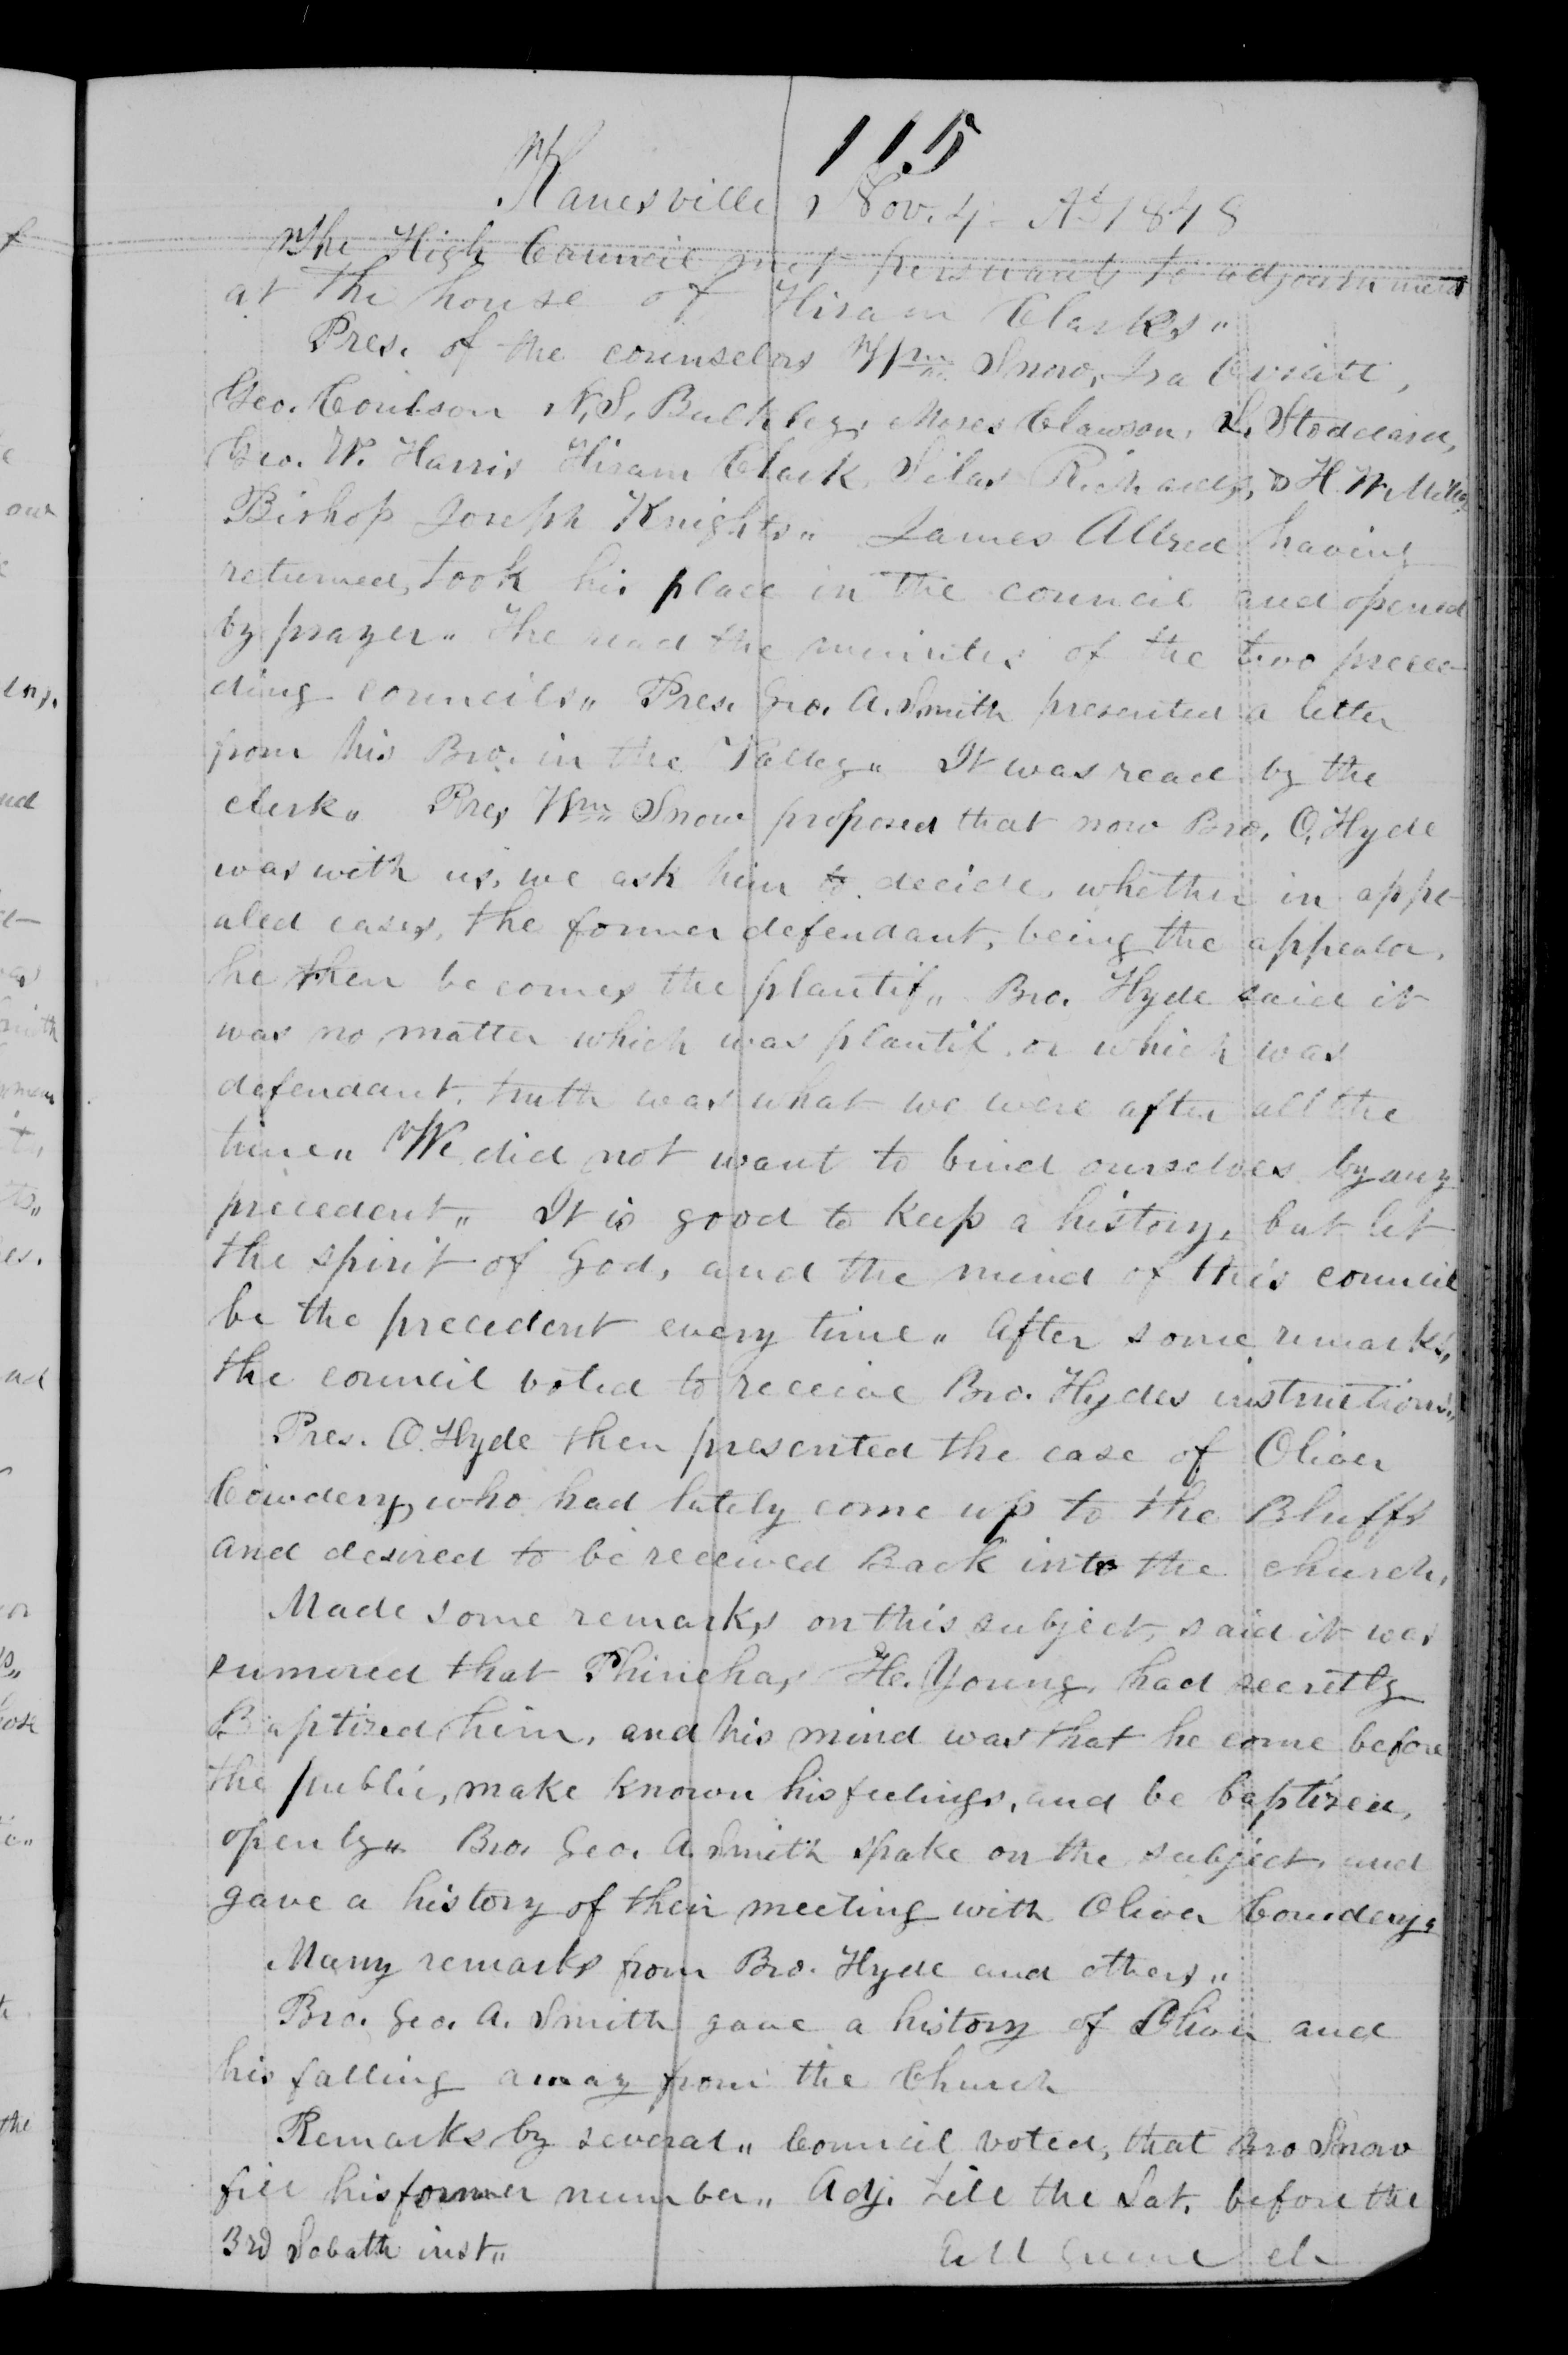 115
Kanesville Nov. 4 Ad 1848
The High Council met persuant to adjournment
at the house of Hiram Clarks"
Pres. of the counselors Wm Snow, Ira Oviatt,
Geo. Coulson N, S, Bulkley, Moses Clawson, L. Stoddard,
Geo. W. Harris Hiram Clark, Silas Richards, & H. W. Miller,
Bishop Joseph Knights" James Allred having
returned, took his place in the council and opened
by prayer" The read the minutes of the two prece-
ding councils" Pres. Geo. A. Smith presented a letter
from his Bro. in the Valley" It was read by the
clerk" Pres Wm Snow proposed that now Bro. O, Hyde
was with us, we ask him to decide, whether in appe-
aled cases, the former defendant, being the appealer,
he then becomes the plantif" Bro. Hyde said it
was no matter which was plantif, or which was
defendant, truth was what we were after all the
time" We did not want to bind ourselves by any
precedent" It is good to keep a history, but let
the spirit of God, and the mind of this council
be the precedent every time" After some remarks,
the council voted to receive Bro. Hydes instructions"
Pres. O. Hyde then presented the case of Oliver
Cowdery, who had lately come up to the Bluffs
and desired to be received Back into the church,
Made some remarks on this subject, said it was
rumored that Phinehas He. Young, had secretly
Baptized him, and his mind was that he come before
the public, make known his feelings, and be baptized,
openly" Bro. Geo. A. Smith spake on the subject, and
gave a history of their meeting with Oliver Cowdery,
Many remarks from Bro. Hyde and others"
Bro. Geo. A. Smith gave a history of Oliver and
his falling away from the Church
Remarks by several" Council voted, that Bro Snow
fill his former number" Adj. till the Sat. before the
3rd Sabath inst"